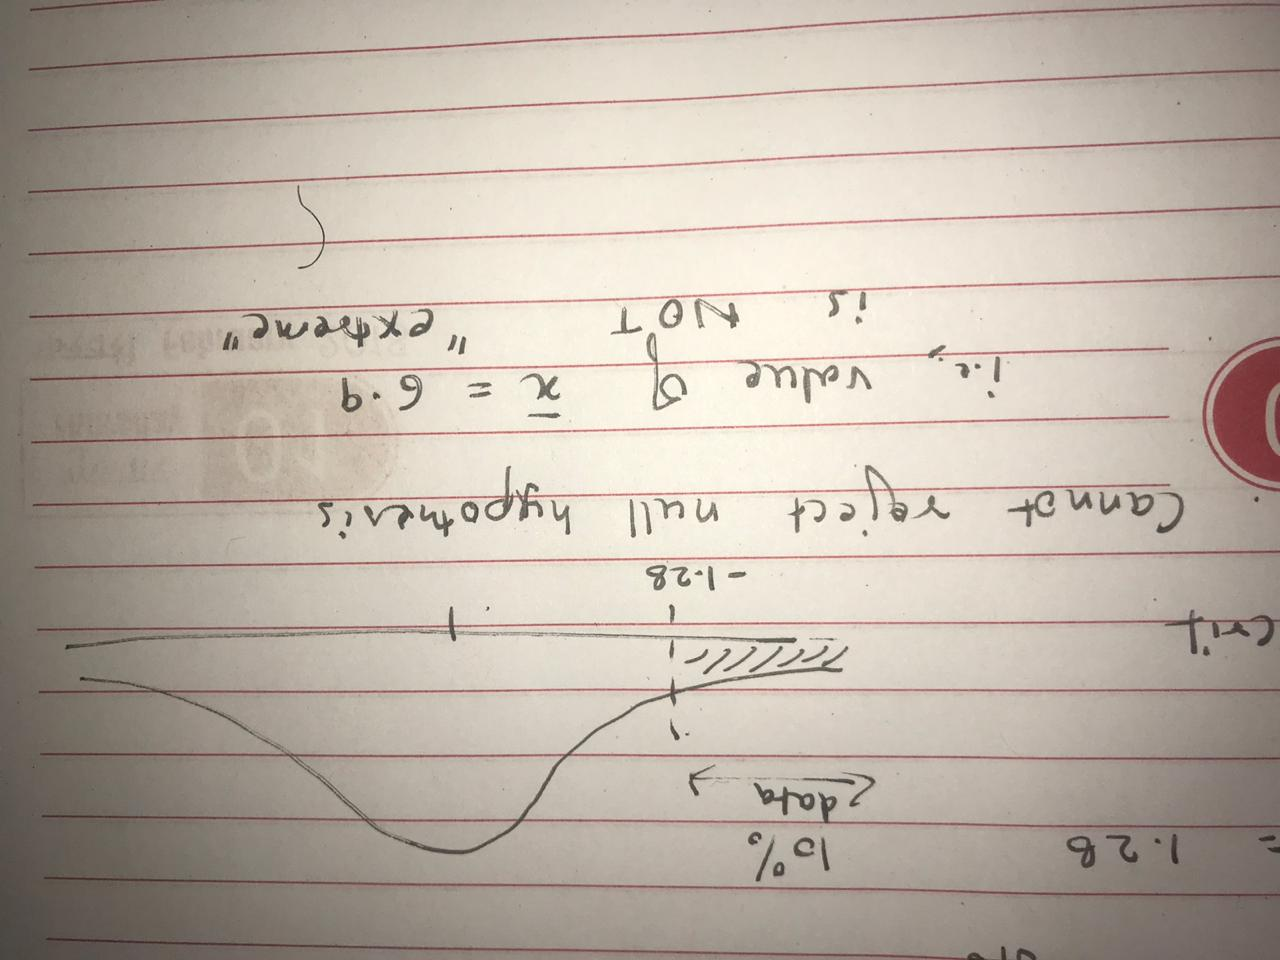 = 1.28
10%
data
crit
-1.28
Cannot reject null hypothesis
i.e., value of x̄ = 6.9
is NOT "extreme"